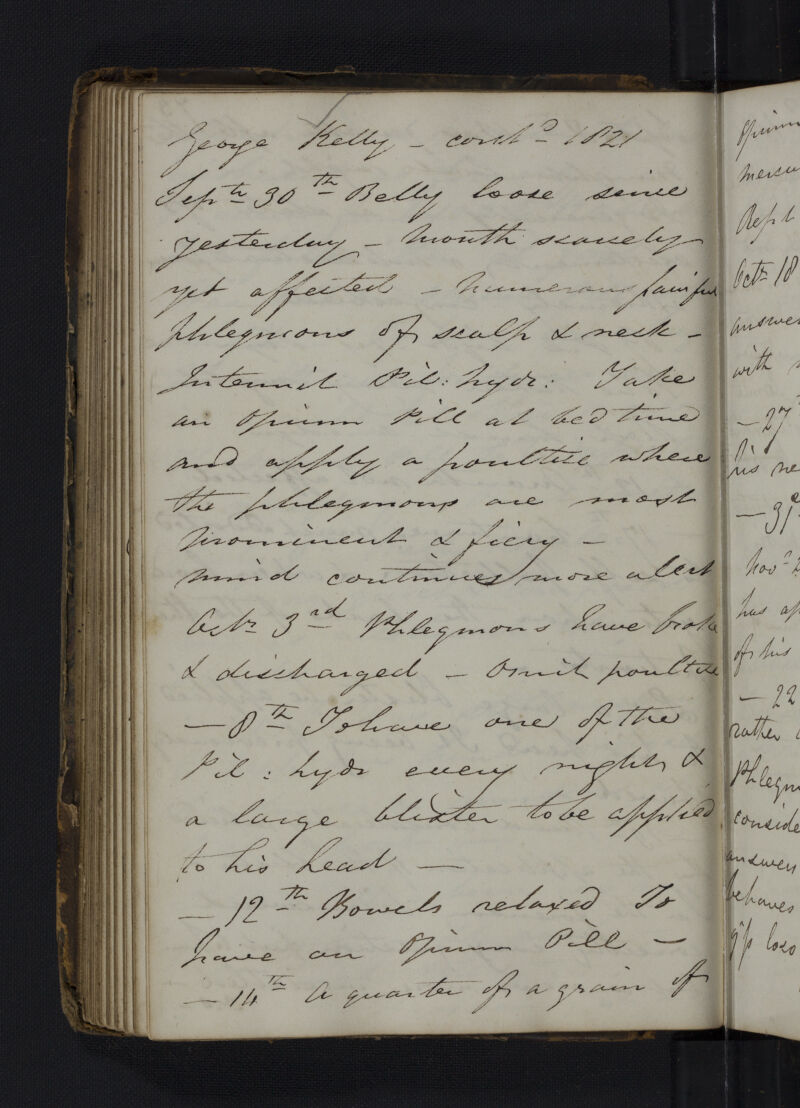 George Kelly - contd - 1821
Septr 30th Belly loose since
yesterday - Mouth scarcely
yet affected - Numerous painful
phlegmons of scalp & neck -
Intermit Pil: hydr: Take
an Opium Pill at bed time
and apply a poultice where
the phlegmons are most
prominent & fiery -
Mind continues more alert
Octr 3rd Phlegmons have broke
& discharged - Omit poultice
- 8th To have one of the
Pil: hydr every night &
a large blister to be applied
to his head -
- 12th Bowels relaxed To
have an Opium Pill -
- 14th A quarter of a grain of
Opium
Repl
Octr 18
answer
with
- 27
his ne
- 31
Novr 2
has ap
of his
- 22
rather
Phlegm
conside
answers
behaves